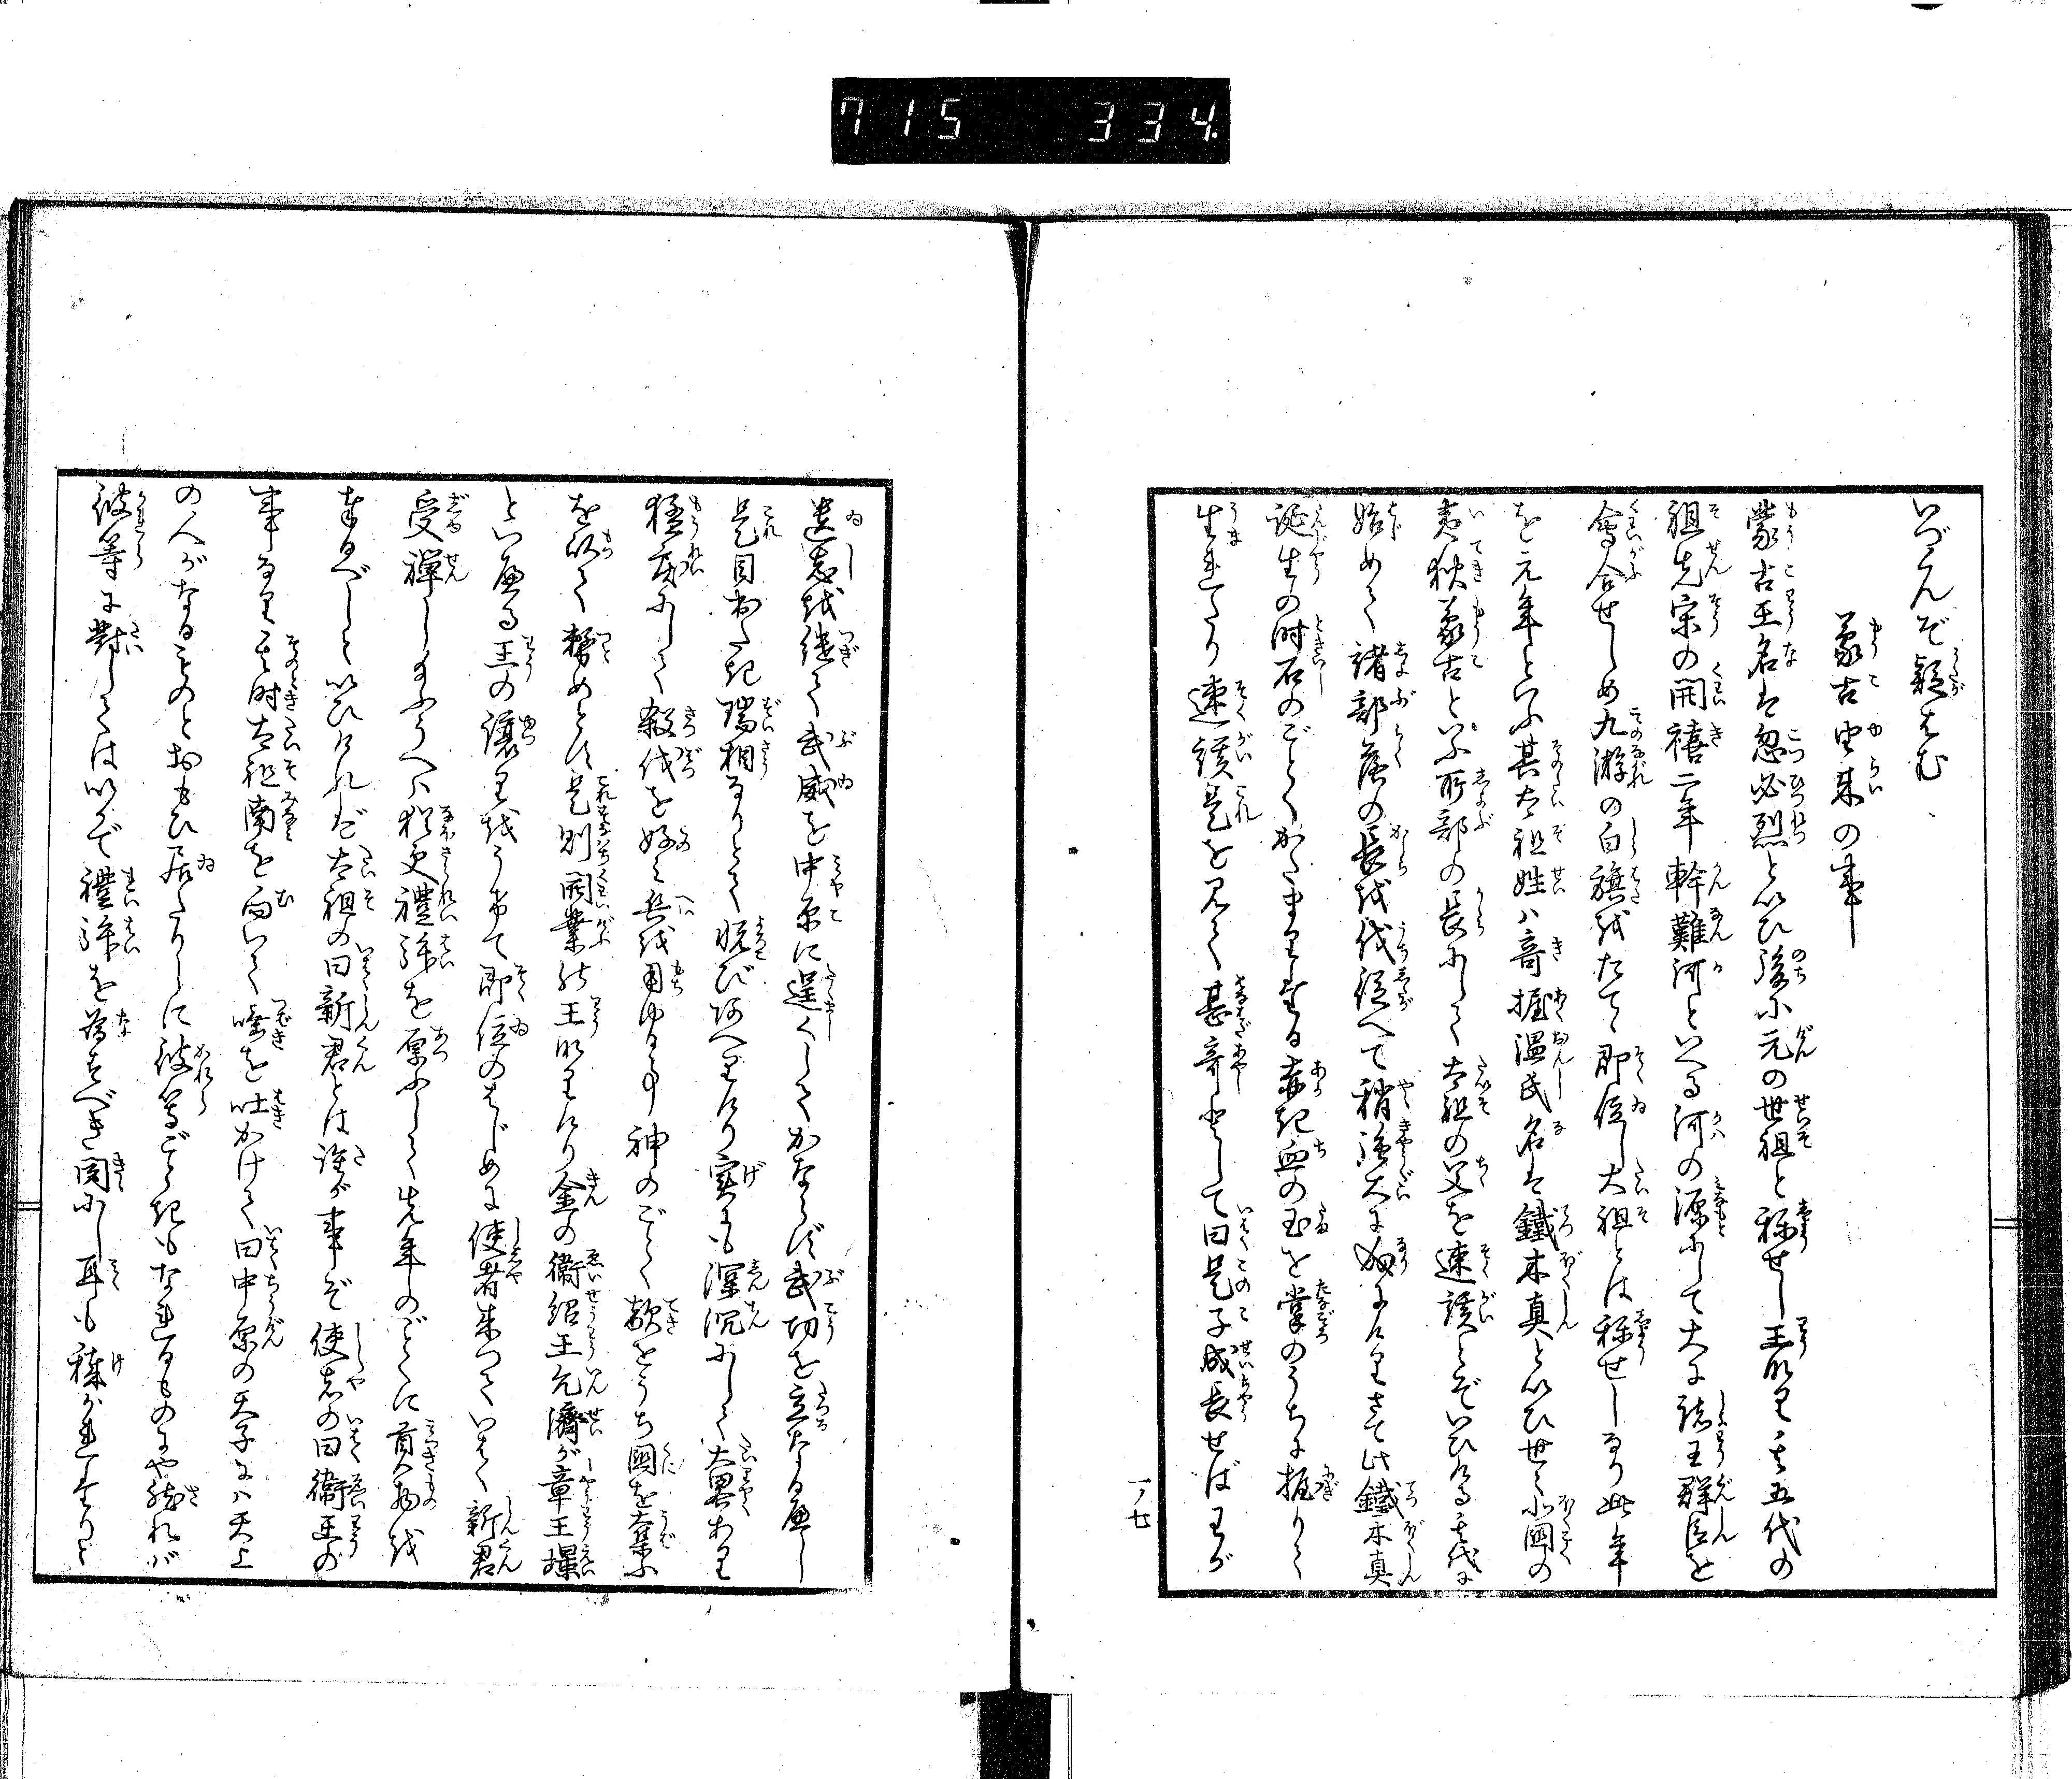 715 334
いづくんぞ疑はむ
蒙古由来の事
蒙古王名は忽必烈といひ後に元の世祖と称せし王なり其五代の
祖先宋の開禧二年斡難河といへる河の源にして大に諸王群臣を
會合せしめ九游の白旗をたて即位し太祖とは称せしなり此年
を元年といふ其太祖姓ハ奇握温氏名は鐵木真といひ世々北國の
夷狄蒙古といふ所部の長にして太祖の父を速該とぞいひける其代に
始めて諸部落の長を伐従へて稍強大に成にけりさて此鐵木真
誕生の時石のごとくかたまりたる赤き血の玉を掌のうちに握りて
生れたり速該是を見て甚奇として曰是子成長せばわが
一ノ七
遺志を継て武威を中原に逞くしてかならず武功を立たるべし
是目出たき瑞相なりとて悦びあへりけり実にも深沉にして大畧あり
猛戻にして殺伐を好み兵を用ゆる事神のごとく敵をうち國を奪ふ
を以て務めとす是則開業の王なりけり金の衛紹王允濟が章王璟
といへる王の譲りをうけて即位のはじめに使者来つていはく新君
受禅しまふうへハ猶更禮拜を厚ふして先年のごとくに貢物を
奉るべしといひけれバ太祖の曰新君とは誰が事ぞ使者の曰衛王の
事なり其時太祖南を向いて唾を吐かけて曰中原の天子にハ天上
の人がなるものとおもひ居たりしに彼等ごときもなれるものにや然れバ
彼等に對しては いかで禮拜を為すべき聞にし耳も穢かれたりと